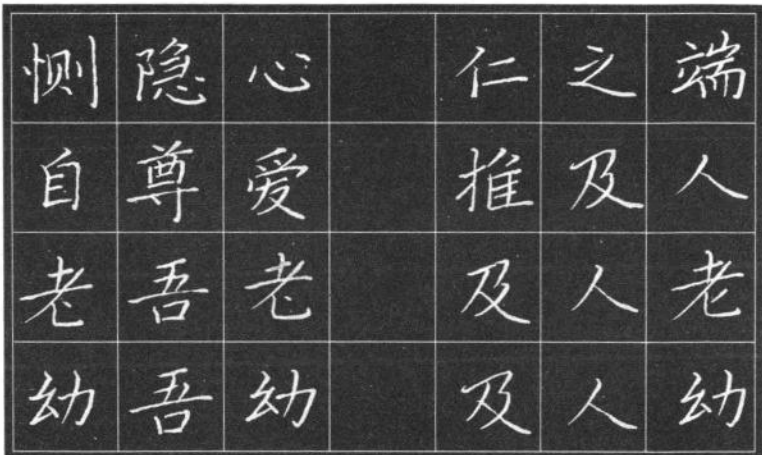 恻隐心 仁之端
自尊爱 推及人
老吾老 及人老
幼吾幼 及人幼